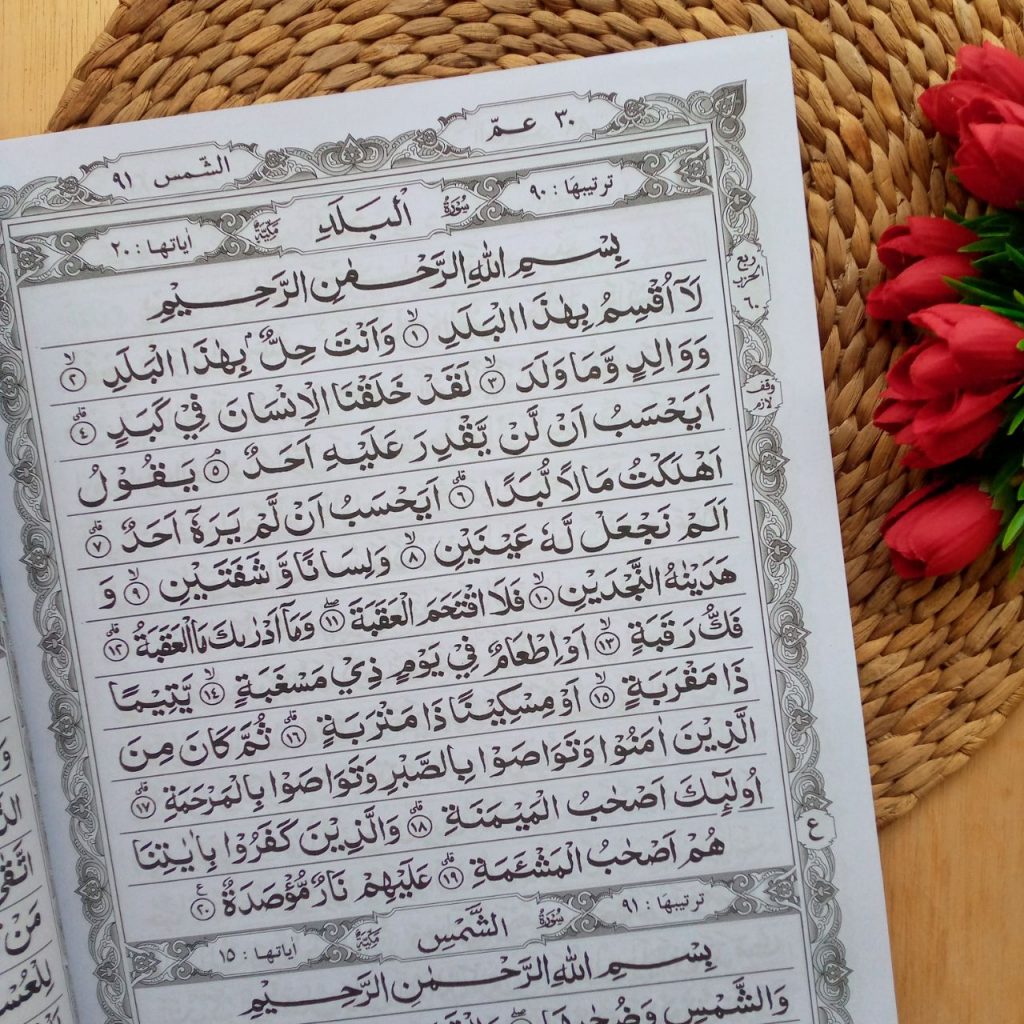 ٣٠ عمّ
الشّمس ٩١
ترتيبها : ٩٠
سُورَةُ الْبَلَدِ مَكِّيَّةٌ
اٰياتها : ٢٠
بِسْمِ اللهِ الرَّحْمٰنِ الرَّحِيْمِ
لَآ اُقْسِمُ بِهٰذَا الْبَلَدِۙ ١ وَاَنْتَ حِلٌّۢ بِهٰذَا الْبَلَدِۙ ٢
وَوَالِدٍ وَّمَا وَلَدَۙ ٣ لَقَدْ خَلَقْنَا الْاِنْسَانَ فِيْ كَبَدٍۗ ٤
اَيَحْسَبُ اَنْ لَّنْ يَّقْدِرَ عَلَيْهِ اَحَدٌۘ ٥ يَقُوْلُ
اَهْلَكْتُ مَالًا لُّبَدًاۗ ٦ اَيَحْسَبُ اَنْ لَّمْ يَرَهٗٓ اَحَدٌۗ ٧
اَلَمْ نَجْعَلْ لَّهٗ عَيْنَيْنِۙ ٨ وَلِسَانًا وَّشَفَتَيْنِۙ ٩ وَ
هَدَيْنٰهُ النَّجْدَيْنِۙ ١٠ فَلَا اقْتَحَمَ الْعَقَبَةَۖ ١١ وَمَآ اَدْرٰىكَ مَا الْعَقَبَةُۗ ١٢
فَكُّ رَقَبَةٍۙ ١٣ اَوْ اِطْعَامٌ فِيْ يَوْمٍ ذِيْ مَسْغَبَةٍۙ ١٤ يَّتِيْمًا
ذَا مَقْرَبَةٍۙ ١٥ اَوْ مِسْكِيْنًا ذَا مَتْرَبَةٍۗ ١٦ ثُمَّ كَانَ مِنَ
الَّذِيْنَ اٰمَنُوْا وَتَوَاصَوْا بِالصَّبْرِ وَتَوَاصَوْا بِالْمَرْحَمَةِۗ ١٧
اُولٰۤىِٕكَ اَصْحٰبُ الْمَيْمَنَةِۗ ١٨ وَالَّذِيْنَ كَفَرُوْا بِاٰيٰتِنَا
هُمْ اَصْحٰبُ الْمَشْـَٔمَةِۗ ١٩ عَلَيْهِمْ نَارٌ مُّؤْصَدَةٌ ࣖ ٢٠
ربع الحزب ٦٠
وقف لازم
ع
ترتيبها : ٩١
سُورَةُ الشَّمْسِ مَكِّيَّةٌ
اٰياتها : ١٥
بِسْمِ اللهِ الرَّحْمٰنِ الرَّحِيْمِ
وَالشَّمْسِ وَضُحٰىهَا